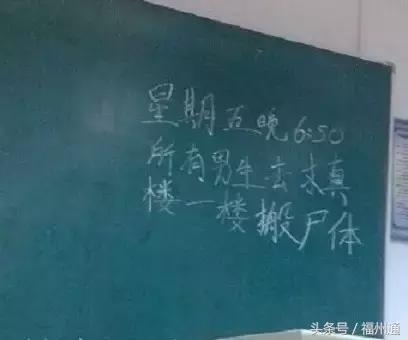 星期五晚6:50
所有男生去求真
楼一楼搬尸体
头条号/福州通